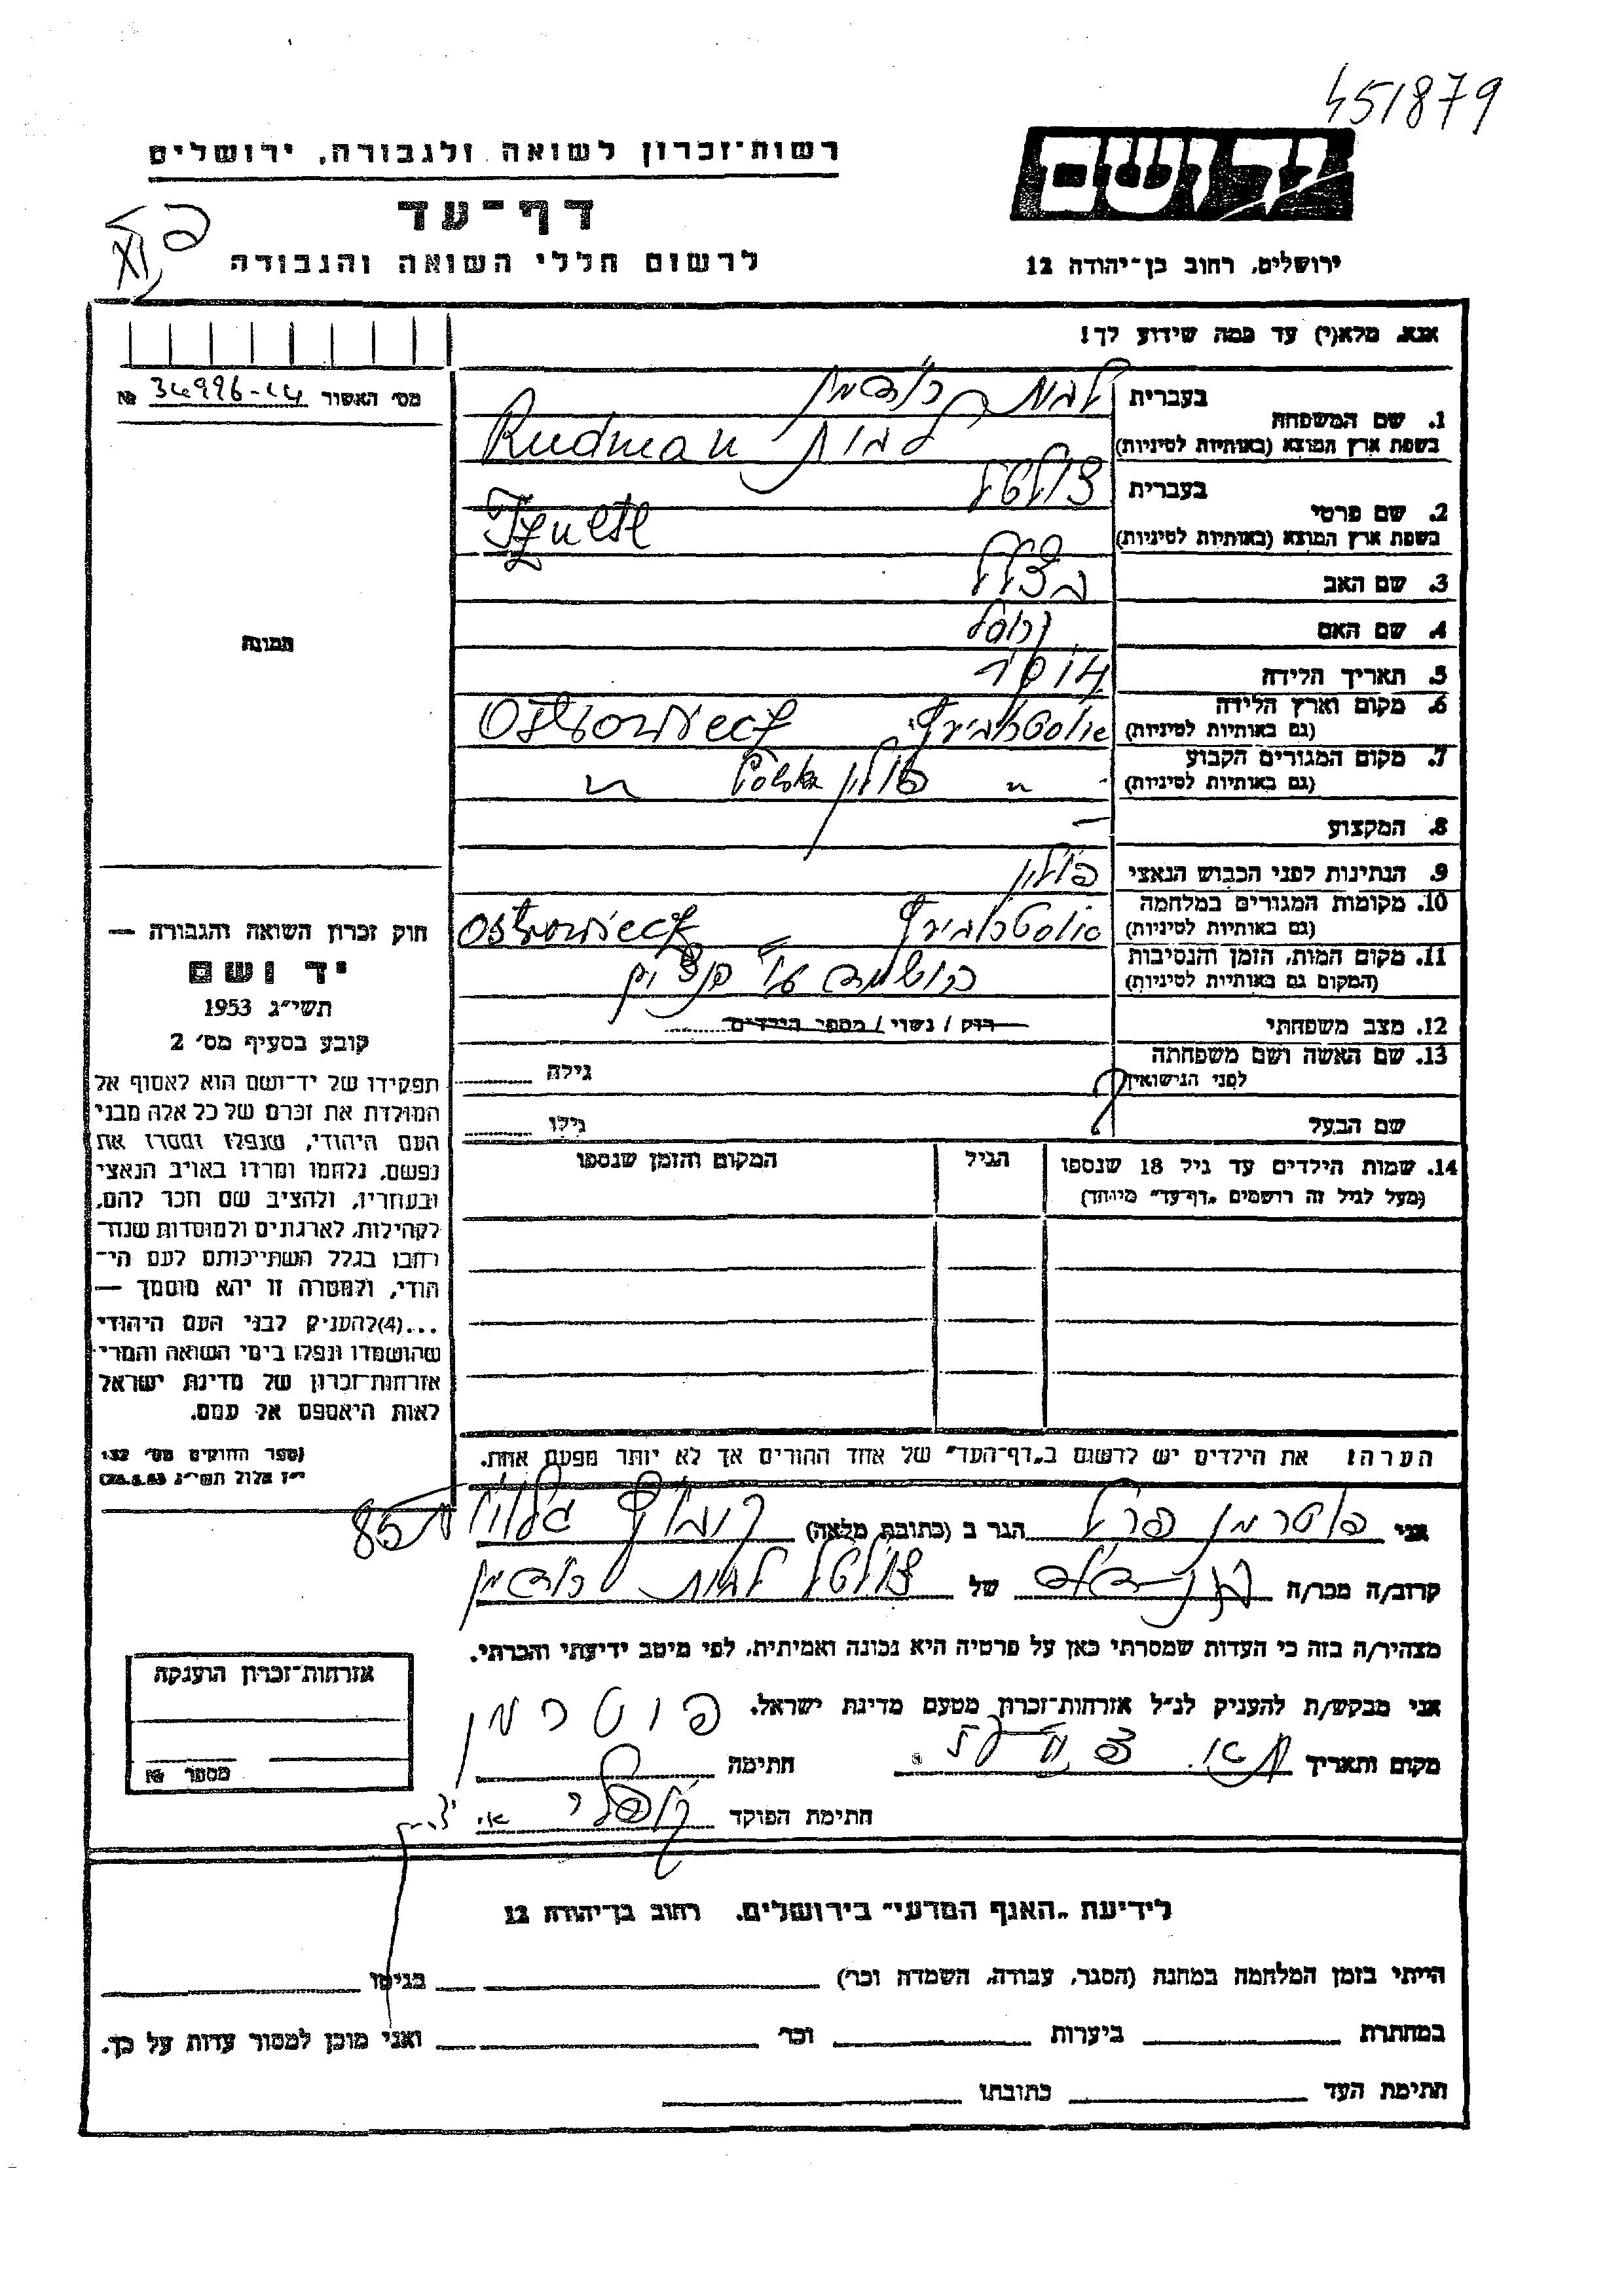 451879
יד ושם
רשות־זכרון לשואה ולגבורה, ירושלים
דף־עד
לרשום חללי השואה והגבורה
ירושלים, רחוב בן־יהודה 12
אנא, מלא(י) עד כמה שידוע לך!
מס' האשור 34996-44 №
1. שם המשפחה
בעברית
בשפת ארץ המוצא (באותיות לטיניות) Rudman
2. שם פרטי
בעברית
בשפת ארץ המוצא (באותיות לטיניות)
3. שם האב
4. שם האם
5. תאריך הלידה
6. מקום וארץ הלידה
(גם באותיות לטיניות) Ostrowieck
7. מקום המגורים הקבוע
(גם באותיות לטיניות) " פולין "
8. המקצוע –
9. הנתינות לפני הכבוש הנאצי פולין
10. מקומות המגורים במלחמה
(גם באותיות לטיניות) Ostrowieck
11. מקום המות, הזמן והנסיבות
(המקום גם באותיות לטיניות)
12. מצב משפחתי רוק / נשוי / מספר הילדים
13. שם האשה ושם משפחתה
לפני הנישואין גילה
שם הבעל גילו
14. שמות הילדים עד גיל 18 שנספו הגיל המקום והזמן שנספו
(מעל לגיל זה רושמים „דף־עד" מיוחד)
תמונה
חוק זכרון השואה והגבורה —
יד ושם
תשי״ג 1953
קובע בסעיף מס' 2
תפקידו של יד־ושם הוא לאסוף אל
המולדת את זכרם של כל אלה מבני
העם היהודי, שנפלו ומסרו את
נפשם, נלחמו ומרדו באויב הנאצי
ובעוזריו, ולהציב שם וזכר להם,
לקהילות, לארגונים ולמוסדות שנח־
רבו בגלל השתייכותם לעם הי־
הודי, ולמטרה זו יהא מוסמך —
...(4)להעניק לבני העם היהודי
שהושמדו ונפלו בימי השואה והמרי
אזרחות־זכרון של מדינת ישראל
לאות היאספם אל עמם.
(ספר החוקים מס' 132
י״ז אלול תשי״ג 28.8.53)
הערה: את הילדים יש לרשום ב„דף־העד" של אחד ההורים אך לא יותר מפעם אחת.
אני פוטרמן פרל הגר ב (כתובת מלאה) 85
קרוב/ה מכר/ה בן-דוד של
מצהיר/ה בזה כי העדות שמסרתי כאן על פרטיה היא נכונה ואמיתית, לפי מיטב ידיעתי והכרתי.
אני מבקש/ת להעניק לנ״ל אזרחות־זכרון מטעם מדינת ישראל.
מקום ותאריך חתימה פוטרמן
חתימת הפוקד
אזרחות־זכרון הוענקה
מספר №
לידיעת „האגף המדעי" בירושלים, רחוב בן־יהודה 12
הייתי בזמן המלחמה במחנה (הסגר, עבודה, השמדה וכו') בגיטו
במחתרת ביערות וכו' ואני מוכן למסור עדות על כך.
חתימת העד כתובתו